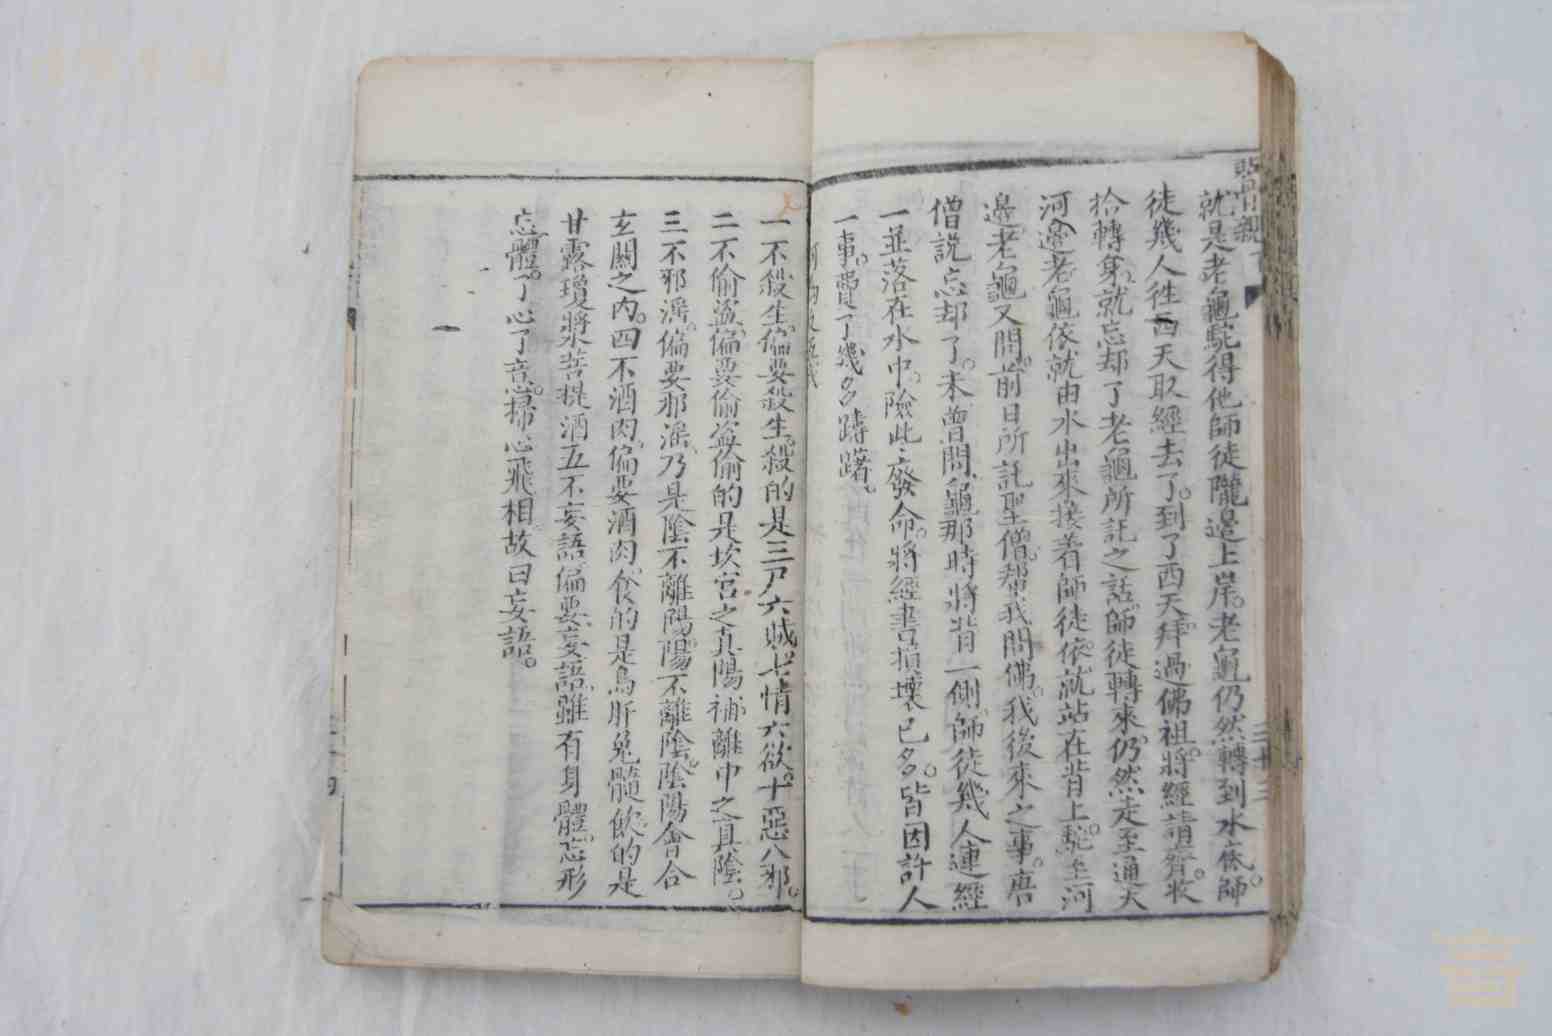 就是老龜駝得他師徒隴邊上岸。老龜仍然轉到水底。師
徒幾人徃西天取經去了。到了西天。拜過佛祖。將經請齊。收
拾轉身。就忘却了老龜所託之話。師徒轉來。仍然走至通天
河邊。老龜依就由水出來接着師徒。依就站在背上。駝至河
邊。老龜又問。前日所託聖僧。帮我問佛。我後來之事。唐
僧説忘却了。未曾問。龜那時將背一側。師徒幾人連經
一並落在水中。險此喪命。將經書損壞已多。皆因許人
一事。費了幾多躊躇。
一不殺生。偏要殺生。殺的是三尸六賊七情六欲。十惡八邪。
二不偷盗。偏要偷盗。偷的是坎宮之真陽。補離中之真陰。
三不邪滛。偏要邪滛。乃是陰不離陽。陽不離陰。陰陽會合
玄關之内。四不酒肉。偏要酒肉。食的是烏肝兔髓。飲的是
甘露瓊漿菩提酒。五不妄語。偏要妄語。雖有身體。忘形
忘體。了心了意。掃心飛相。故曰妄語。